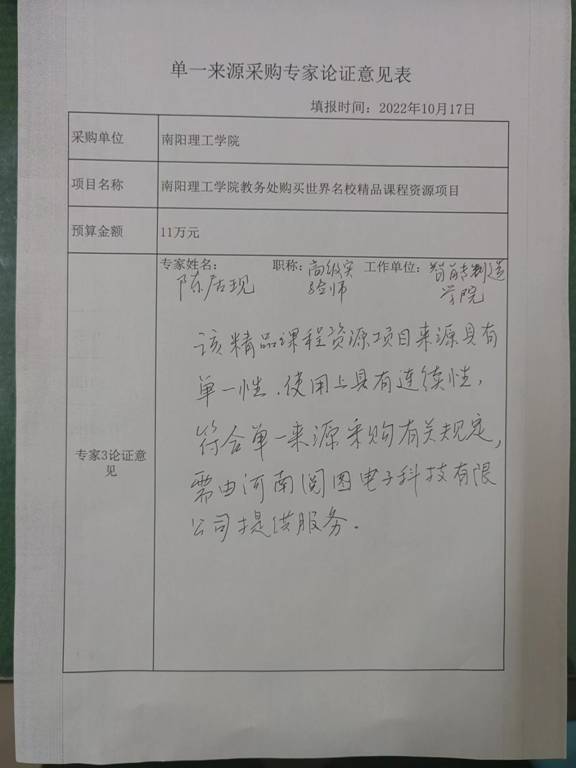 单一来源采购专家论证意见表
填报时间：2022年10月17日
采购单位
南阳理工学院
项目名称
南阳理工学院教务处购买世界名校精品课程资源项目
预算金额
11万元
专家3论证意
见
专家姓名：
陈居现
职称：
高级实
验师
工作单位：
智能制造
学院
该精品课程资源项目来源具有
单一性、使用上具有连续性，
符合单一来源采购有关规定，
需由河南阅图电子科技有限
公司提供服务。